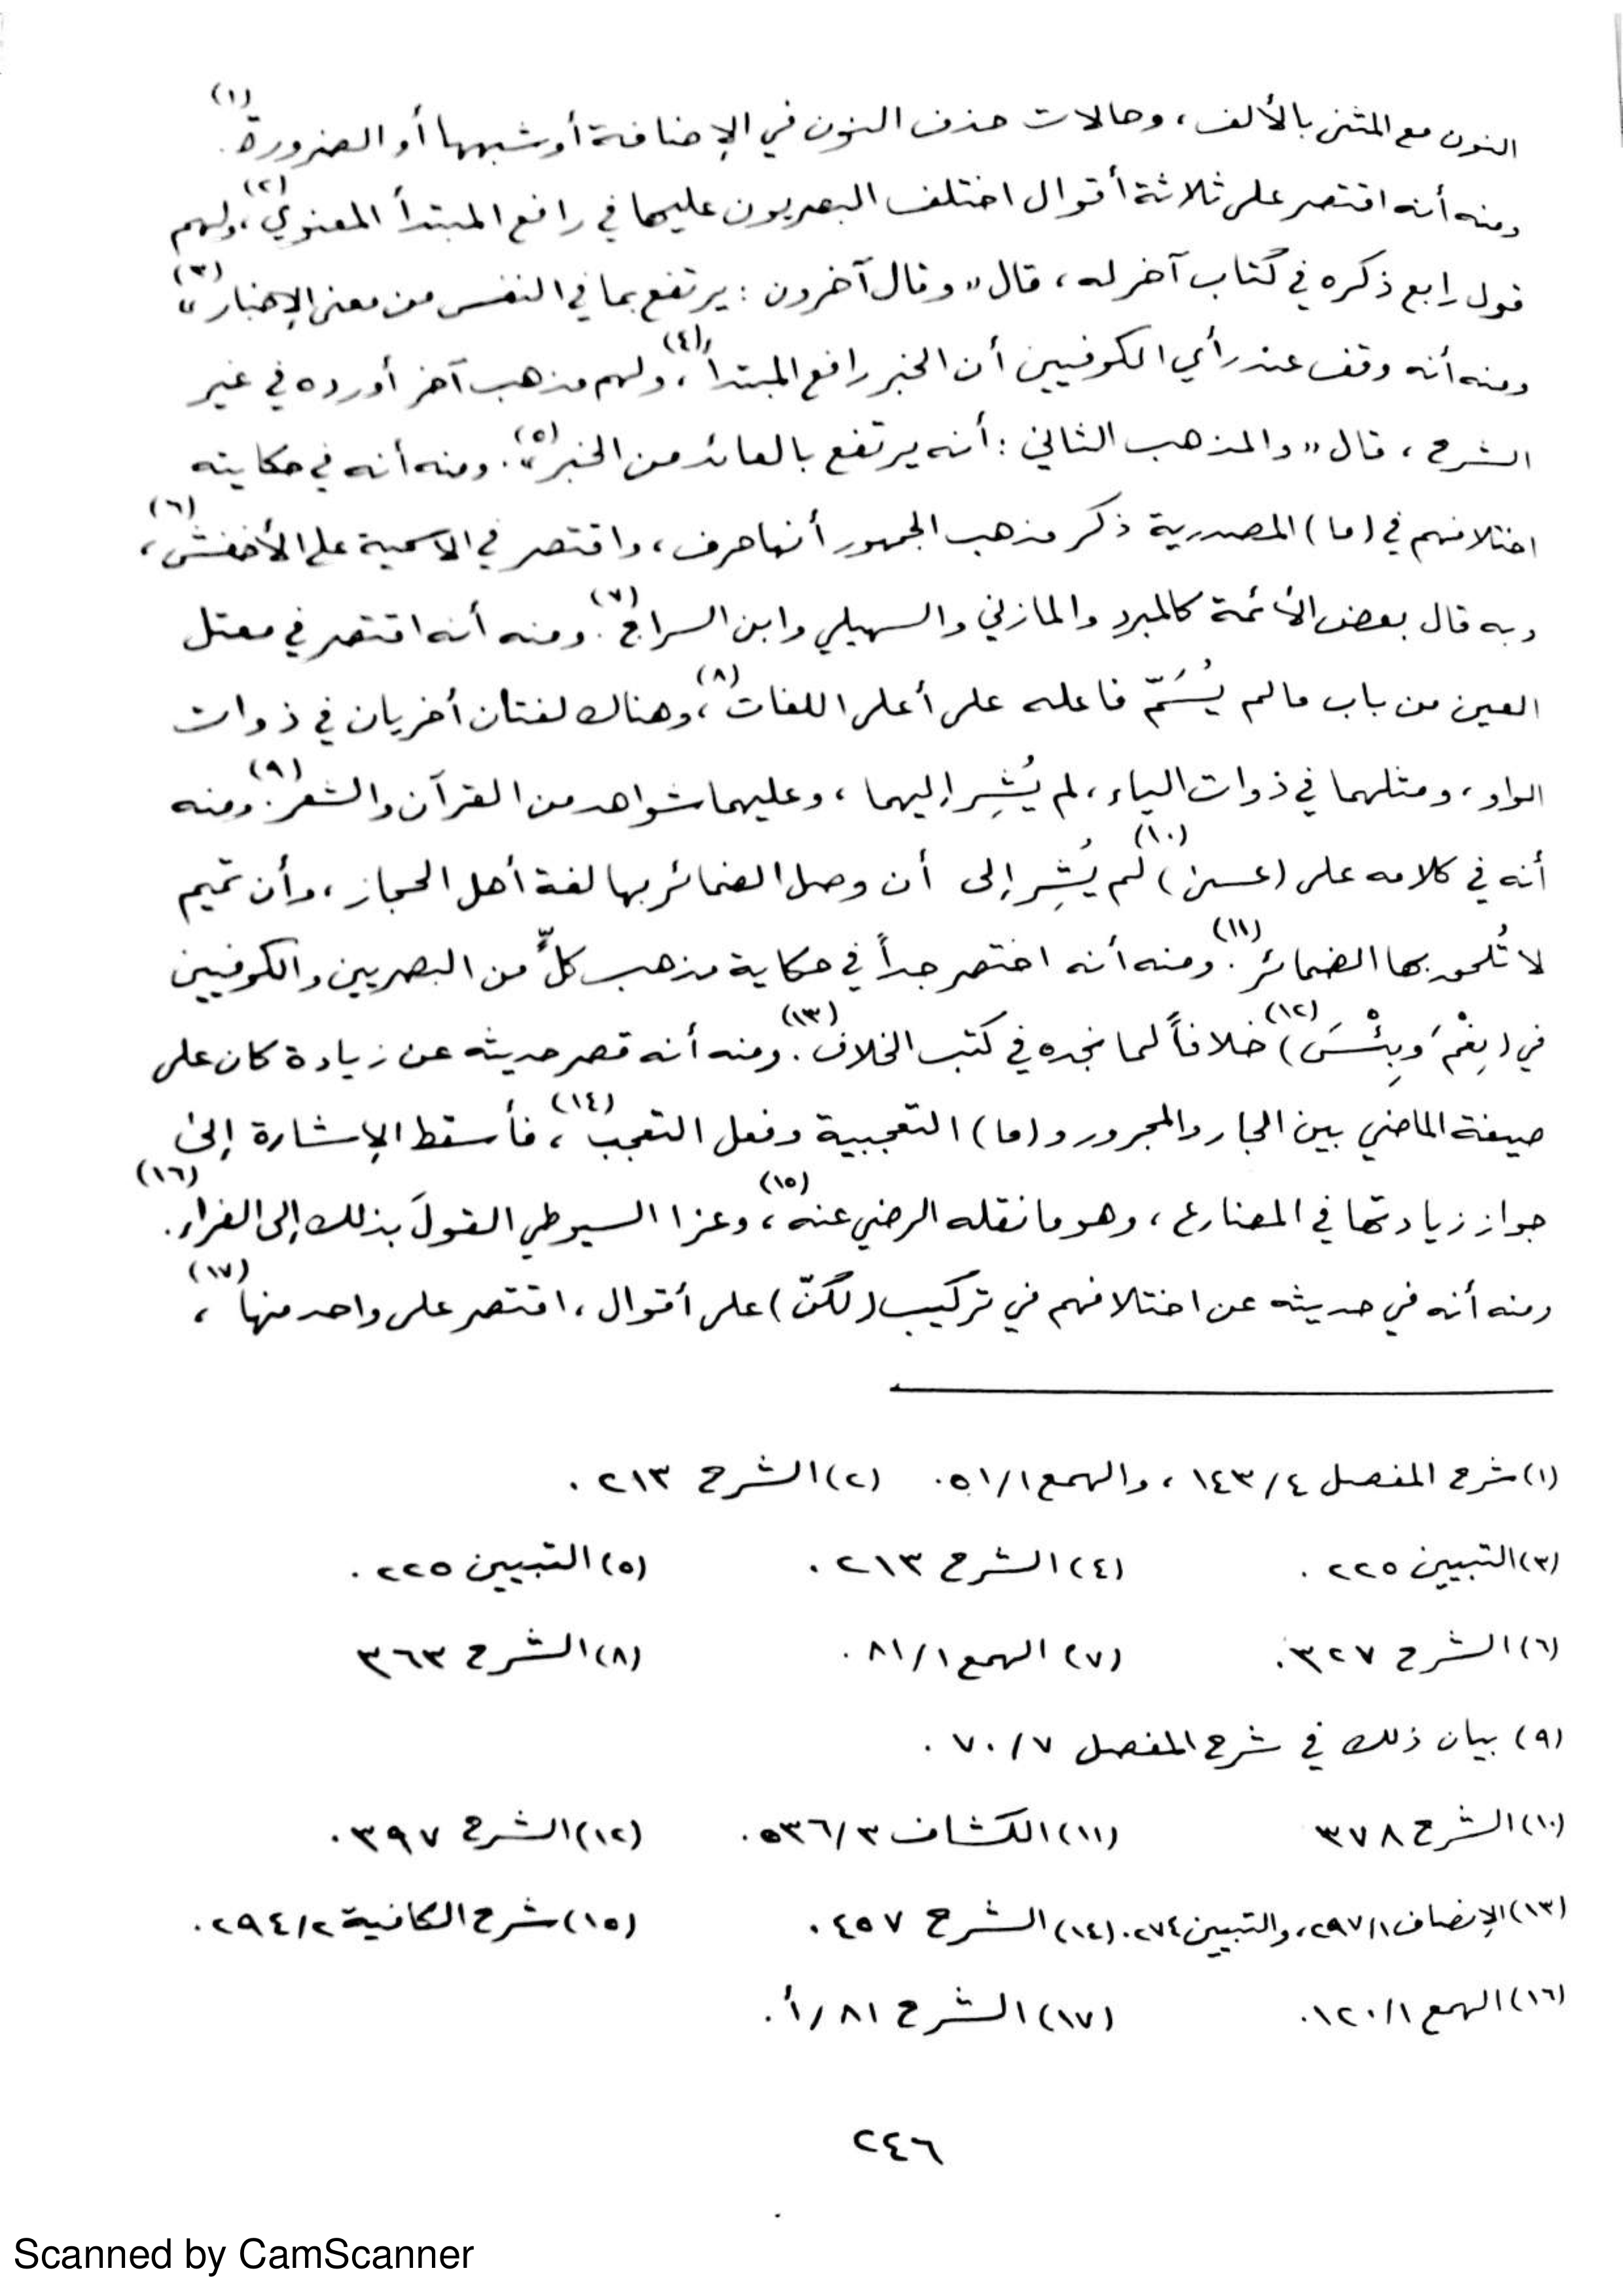 النون مع المثنى بالألف، وحالات حذف النون في الإضافة أو شبهها أو الضرورة(١).
ومنه أنه اقتصر على ثلاثة أقوال اختلف البصريون عليها في رافع المبتدأ المعنوي(٢)، ولهم
قول رابع ذكره في كتاب آخر له، قال «وقال آخرون: يرتفع بما في النفس من معنى الإخبار»(٣)
ومنه أنه وقف عند رأي الكوفيين أن الخبر رافع المبتدأ(٤)، ولهم مذهب آخر أورده في غير
الشرح، قال «والمذهب الثاني: أنه يرتفع بالعائد من الخبر»(٥). ومنه أنه في حكايته
اختلافهم في (ما) المصدرية ذكر مذهب الجمهور أنها حرف، واقتصر في الاسمية على الأخفش(٦)،
وبه قال بعض الأئمة كالمبرد والمازني والسهيلي وابن السراج(٧). ومنه أنه اقتصر في معتل
العين من باب ما لم يُسَمّ فاعله على أعلى اللغات(٨)، وهناك لغتان أخريان في ذوات
الواو، ومثلهما في ذوات الياء، لم يُشِر إليهما، وعليهما شواهد من القرآن والشعر(٩). ومنه
أنه في كلامه على (عسى)(١٠) لم يُشِر إلى أن وصل الضمائر بها لغة أهل الحجاز، وأن تميم
لا تُلحق بها الضمائر(١١). ومنه أنه اختصر جداً في حكاية مذهب كلٍّ من البصريين والكوفيين
في (نِعْمَ وَبِئْسَ)(١٢) خلافاً لما نجده في كتب الخلاف(١٣). ومنه أنه قصر حديثه عن زيادة كان على
صيغة الماضي بين الجار والمجرور و(ما) التعجبية وفعل التعجب(١٤)، فأسقط الإشارة إلى
جواز زيادتها في المضارع، وهو ما نقله الرضي عنه(١٥)، وعزا السيوطي القولَ بذلك إلى الفراء(١٦).
ومنه أنه في حديثه عن اختلافهم في تركيب (لكنّ) على أقوال، اقتصر على واحد منها(١٧)،
(١) شرح المفصل ٤/١٤٣، والهمع ٥١/١. (٢) الشرح ٢١٣.
(٣) التبيين ٢٢٥. (٤) الشرح ٢١٣. (٥) التبيين ٢٢٥.
(٦) الشرح ٣٢٧. (٧) الهمع ٨١/١. (٨) الشرح ٣٦٣
(٩) بيان ذلك في شرح المفصل ٧٠/٧.
(١٠) الشرح ٣٧٨ (١١) الكشاف ٥٣٦/٣. (١٢) الشرح ٣٩٧.
(١٣) الإنصاف ٢٩٧/١، والتبيين ٢٧٤. (١٤) الشرح ٤٥٧. (١٥) شرح الكافية ٢٩٤/٢.
(١٦) الهمع ١٢٠/١. (١٧) الشرح ٨١/أ.
٢٤٦
Scanned by CamScanner